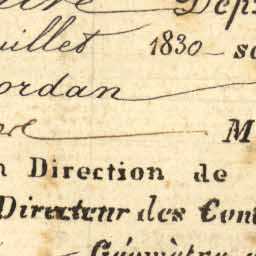 Dépa
uillet 1830 - so
ordan
re M
n Direction de
Directeur des Cont
Géomètre